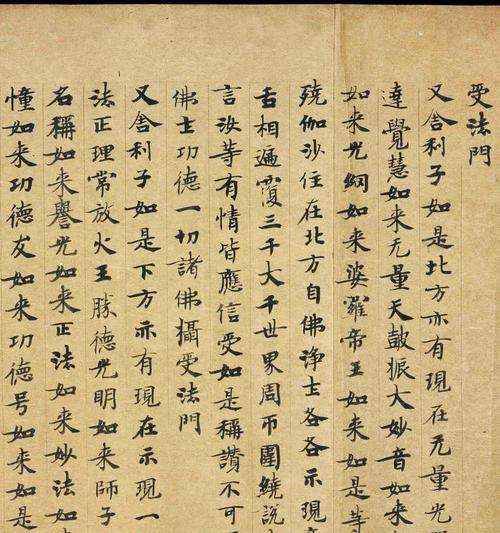 受法門
又舍利子如是北方亦有現在无量光
達覺慧如来无量天鼓振大妙音如来
如来光網如来娑羅帝王如来如是等
殑伽沙住在北方自佛浄土各各示現
舌相遍覆三千大千世界周帀圍繞說
言汝等有情皆應信受如是稱讚不可
佛土功德一切諸佛攝受法門
又舍利子如是下方亦有現在示現一
法正理常放火王勝德光明如来師子
名稱如来譽光如来正法如来妙法如
憧如来功德友如来功德号如来如是